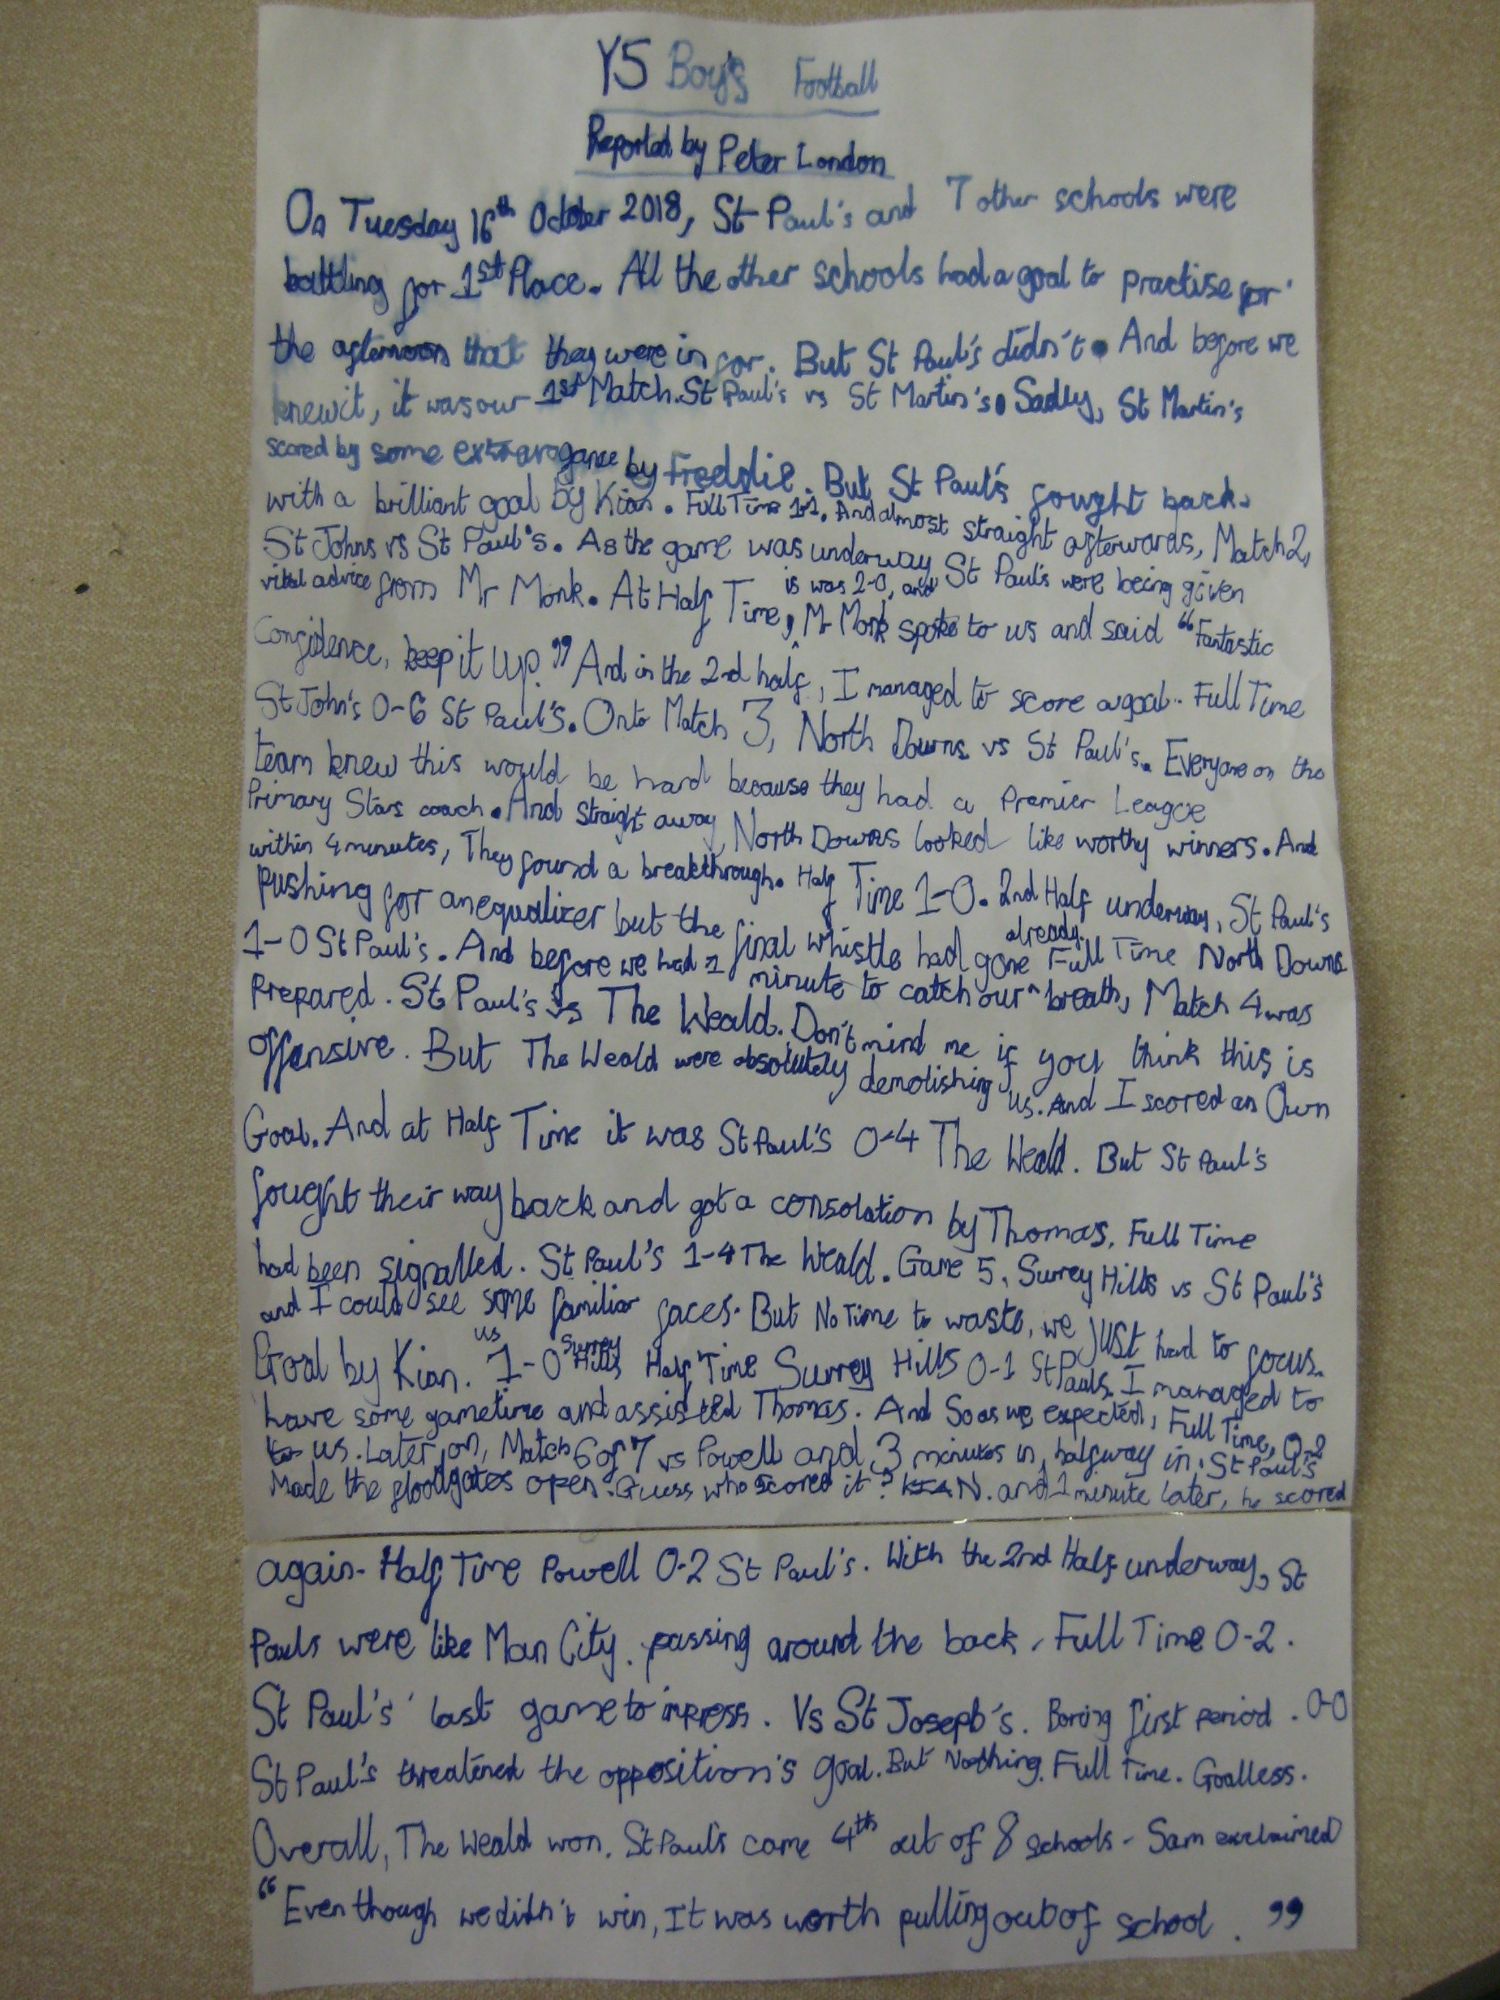 Y5 Boy's Football
Reported by Peter London
On Tuesday 16th October 2018, St Paul's and 7 other schools were
battling for 1st Place. All the other schools had a goal to practise for
the afternoon that they were in for. But St Paul's didn't. And before we
knew it, it was our 1st Match. St Paul's vs St Martin's. Sadly, St Martin's
scored by some extravagance by Freddie. But St Paul's fought back
with a brilliant goal by Kian. Full Time 1-1. And almost straight afterwards, Match 2,
St Johns vs St Paul's. As the game was underway St Paul's were being given
vital advice from Mr Monk. At Half Time, is was 2-0, and Mr Monk spoke to us and said "Fantastic
Confidence, keep it up." And in the 2nd half, I managed to score a goal. Full Time
St John's 0-6 St Paul's. Onto Match 3, North Downs vs St Paul's. Everyone on the
team knew this would be hard because they had a Premier League
Primary Stars coach. And straight away, North Downs looked like worthy winners. And
within 4 minutes, They found a breakthrough. Half Time 1-0. 2nd Half underway, St Paul's
pushing for an equalizer but the final whistle had already gone Full Time North Downs
1-0 St Paul's. And before we had 1 minute to catch our breath, Match 4 was
Prepared. St Paul's vs The Weald. Don't mind me if you think this is
offensive. But The Weald were absolutely demolishing us. And I scored an Own
Goal. And at Half Time it was St Paul's 0-4 The Weald. But St Paul's
fought their way back and got a consolation by Thomas. Full Time
had been signalled. St Paul's 1-4 The Weald. Game 5, Surrey Hills vs St Paul's
and I could see some familiar faces. But No Time to waste, we just had to focus.
Goal by Kian. us 1-0 Surrey Hills Half Time Surrey Hills 0-1 St Pauls. I managed to
have some gametime and assisted Thomas. And So as we expected, Full Time, 0-2
to us. Later on, Match 6 of 7 vs Powell and 3 minutes in, halfway in. St Paul's
Made the floodgates open. Guess who scored it? KIAN. and 1 minute later, he scored
again. Half Time Powell 0-2 St Paul's. With the 2nd Half underway, St
Pauls were like Man City. passing around the back. Full Time 0-2.
St Paul's' last game to impress. Vs St Joseph's. Boring first period. 0-0
St Paul's threatened the opposition's goal. But Nothing. Full Time. Goalless.
Overall, The Weald won. St Paul's came 4th out of 8 schools - Sam exclaimed
"Even though we didn't win, It was worth pulling out of school."